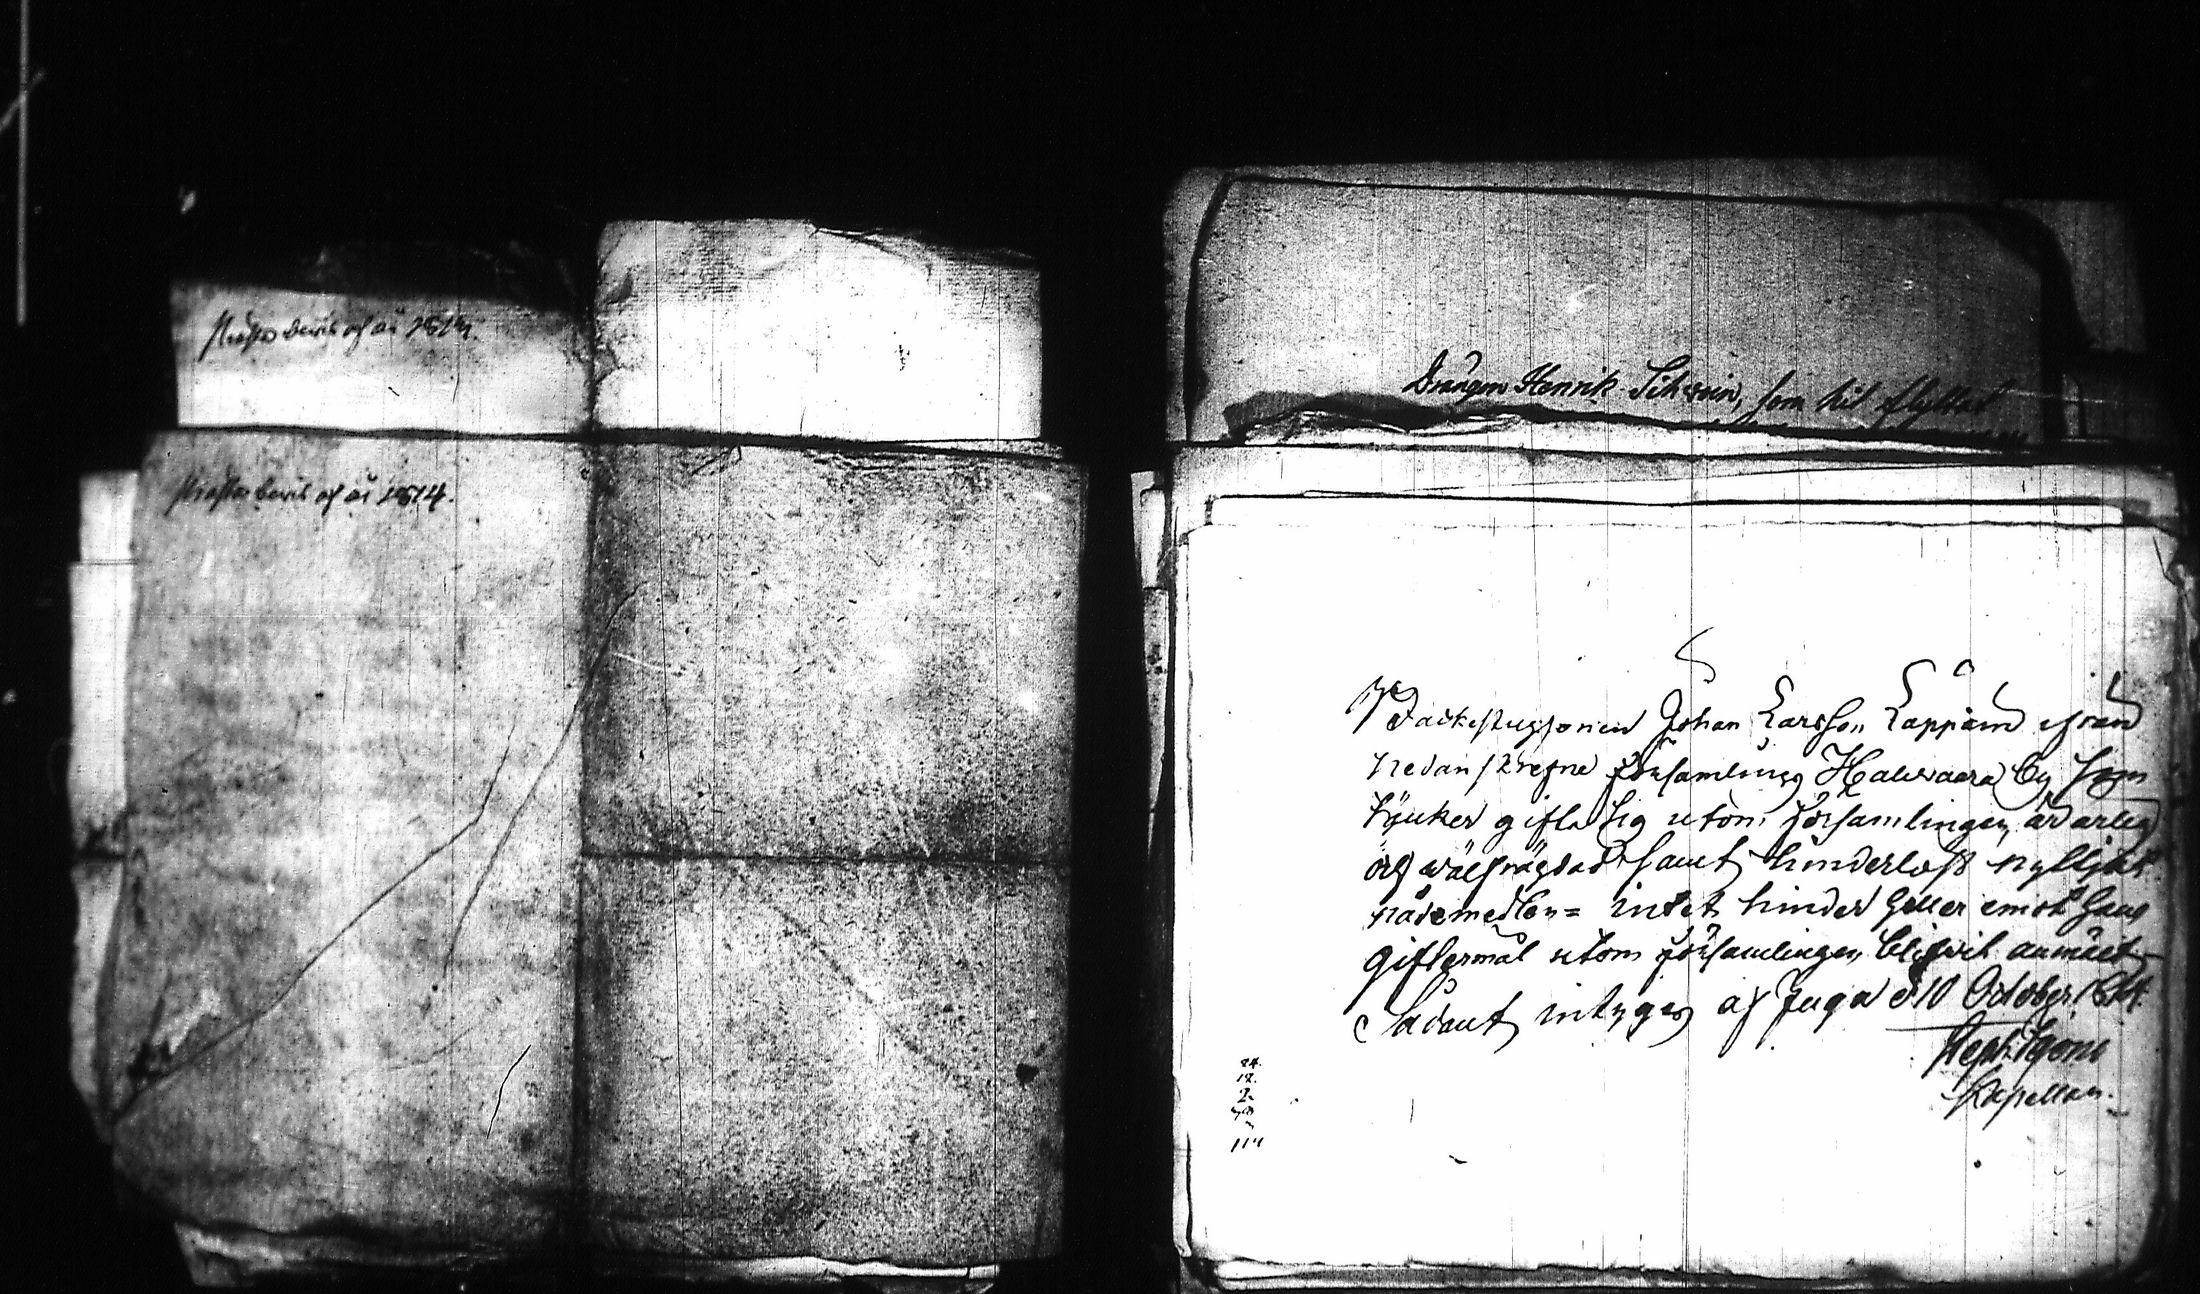 Präste bevis af år 1814.
Präste bevis af år 1814.
Drängen Henrik Sihvoin, som hit flyttat
Backstugsonen Johan Larsson Lappain ifrån
nedanskrefne församling Halivaara by som
tycker gifta sig utom församlingen är ärlig
och wälfrägdad samt hinderlös nyttjat
nådemedlen = intet hinder heller emot hans
giftermål utom församlingen blifwit anmält
Sådant intygas af Juga d 10 October 1814.
Kapellan.
24.
12.
2
114